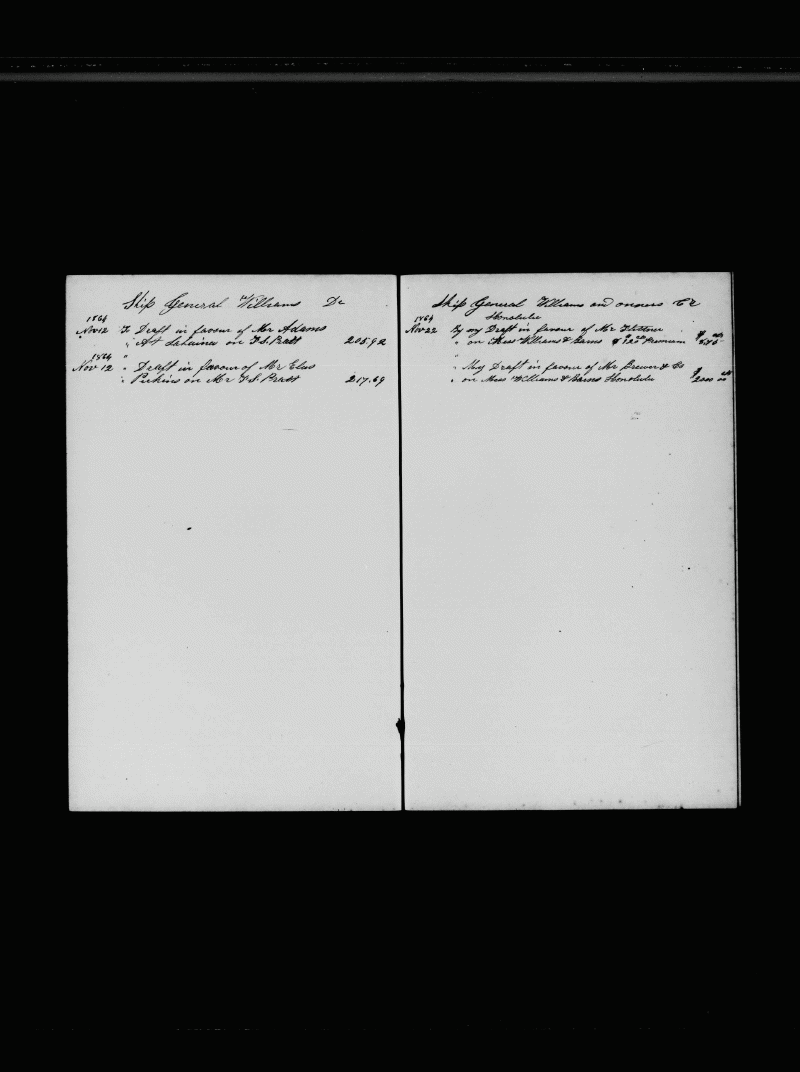 Ship General Williams Dr
1864
Nov 12 To Draft in favour of Mr Adams
" At Lahaina on F S Pratt 205.92
1864 "
Nov 12 " Draft in favour of Mr Elias
" Perkins on Mr F S. Pratt 217.69
Ship General Williams and owners Cr
1864 Honolulu
Nov 22 By my Draft in favour of Mr
" on Mess Williams & Barns Premium $
" My Draft in favour of Mr Brewer & Co
" on Mess Williams & Barnes Honolulu $2000 00